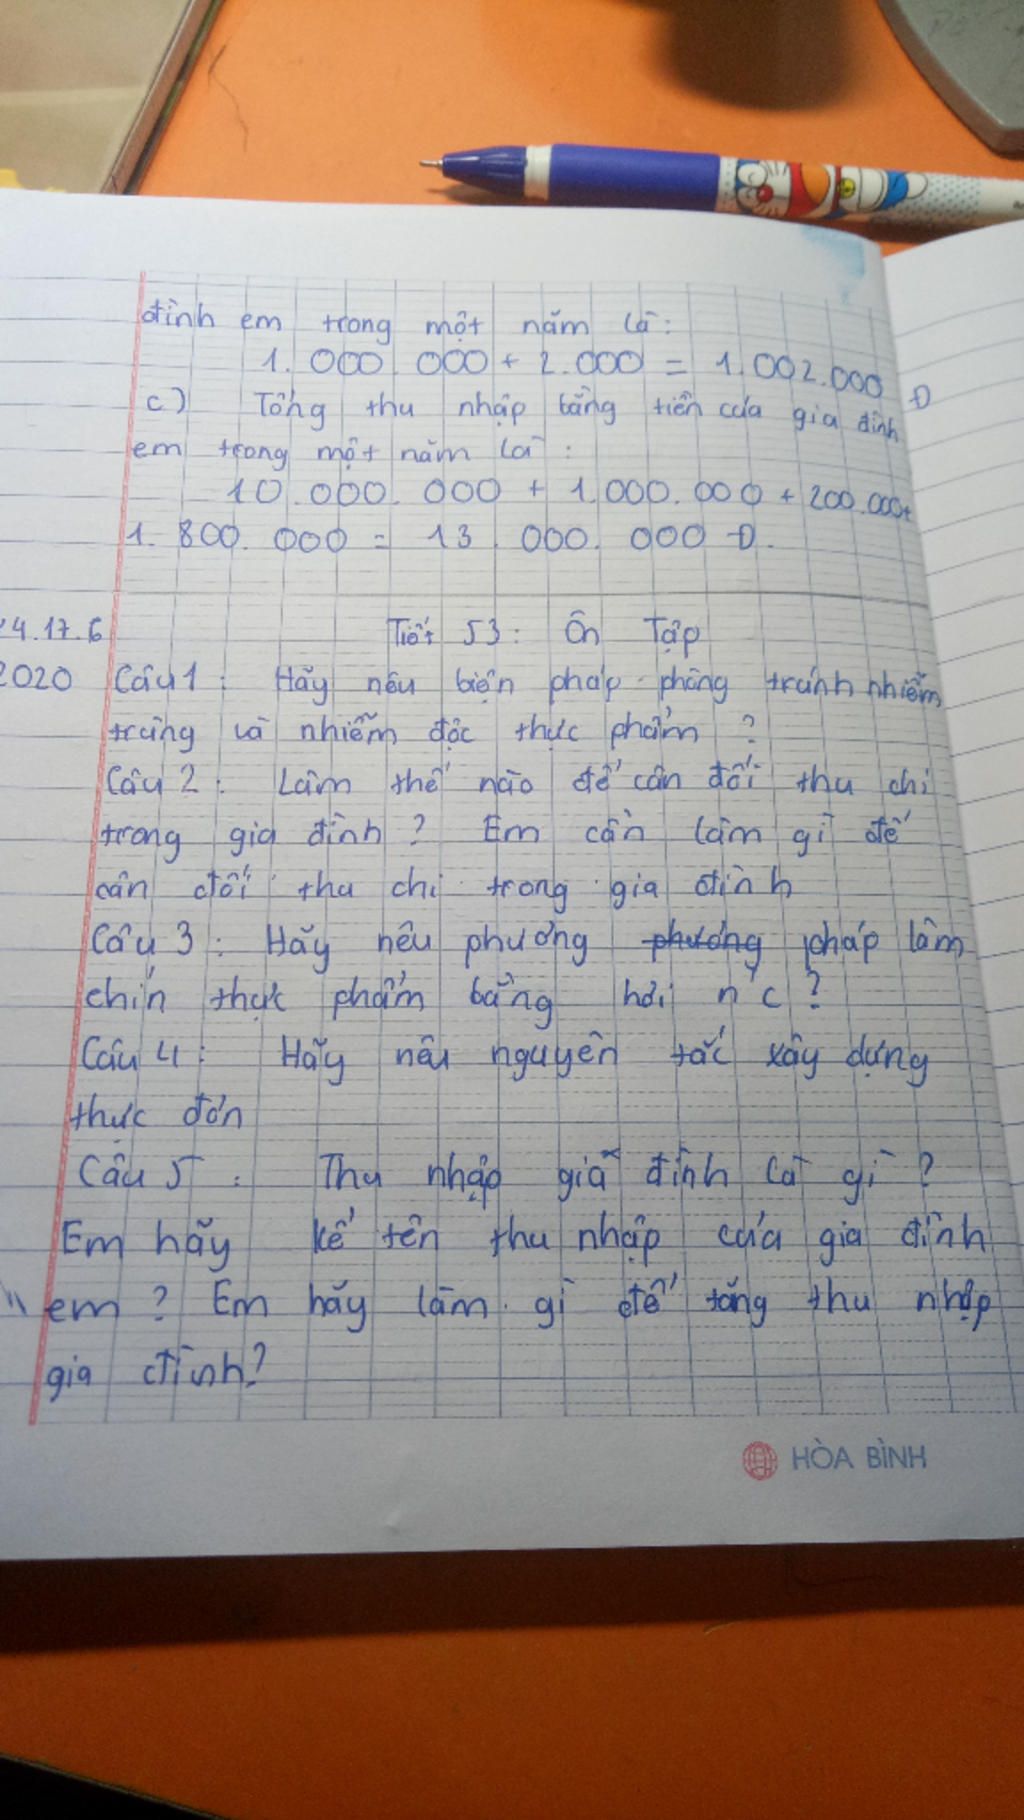 đình em trong một năm là:
1.000.000 + 2.000 = 1.002.000 Đ
c) Tổng thu nhập bằng tiền của gia đình
em trong một năm là :
10.000.000 + 1.000.000 + 200.000+
1.800.000 = 13.000.000 Đ.
24.17.6 Tiết 53: Ôn Tập
2020 Câu 1 : Hãy nêu biện pháp phòng tránh nhiễm
trùng và nhiễm độc thực phẩm ?
Câu 2 : Làm thế nào để cân đối thu chi
trong gia đình ? Em cần làm gì để
cân đối thu chi trong gia đình
Câu 3 : Hãy nêu phương phương pháp làm
chín thực phẩm bằng hơi n'c ?
Câu 4 : Hãy nêu nguyên tắc xây dựng
thực đơn
Câu 5 : Thu nhập gia đình là gì ?
Em hãy kể tên thu nhập của gia đình
em ? Em hãy làm gì để tăng thu nhập
gia đình?
HÒA BÌNH